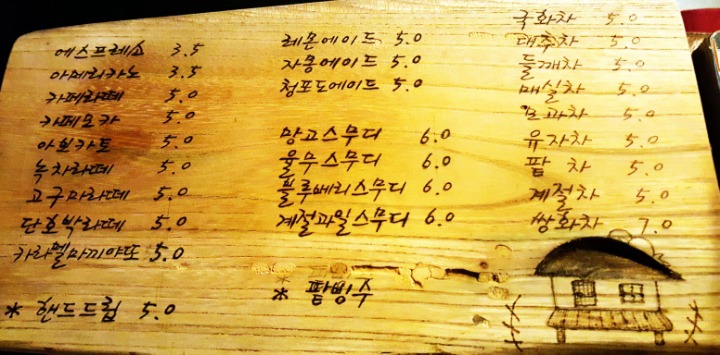 에스프레소 3.5
아메리카노 3.5
카페라떼 5.0
카페모카 5.0
아포카토 5.0
녹차라떼 5.0
고구마라떼 5.0
단호박라떼 5.0
카라멜마끼아또 5.0
* 핸드드립 5.0
레몬에이드 5.0
자몽에이드 5.0
청포도에이드 5.0
망고스무디 6.0
율무스무디 6.0
블루베리스무디 6.0
계절과일스무디 6.0
* 팥빙수
국화차 5.0
대추차 5.0
들깨차 5.0
매실차 5.0
모과차 5.0
유자차 5.0
팥차 5.0
계절차 5.0
쌍화차 7.0